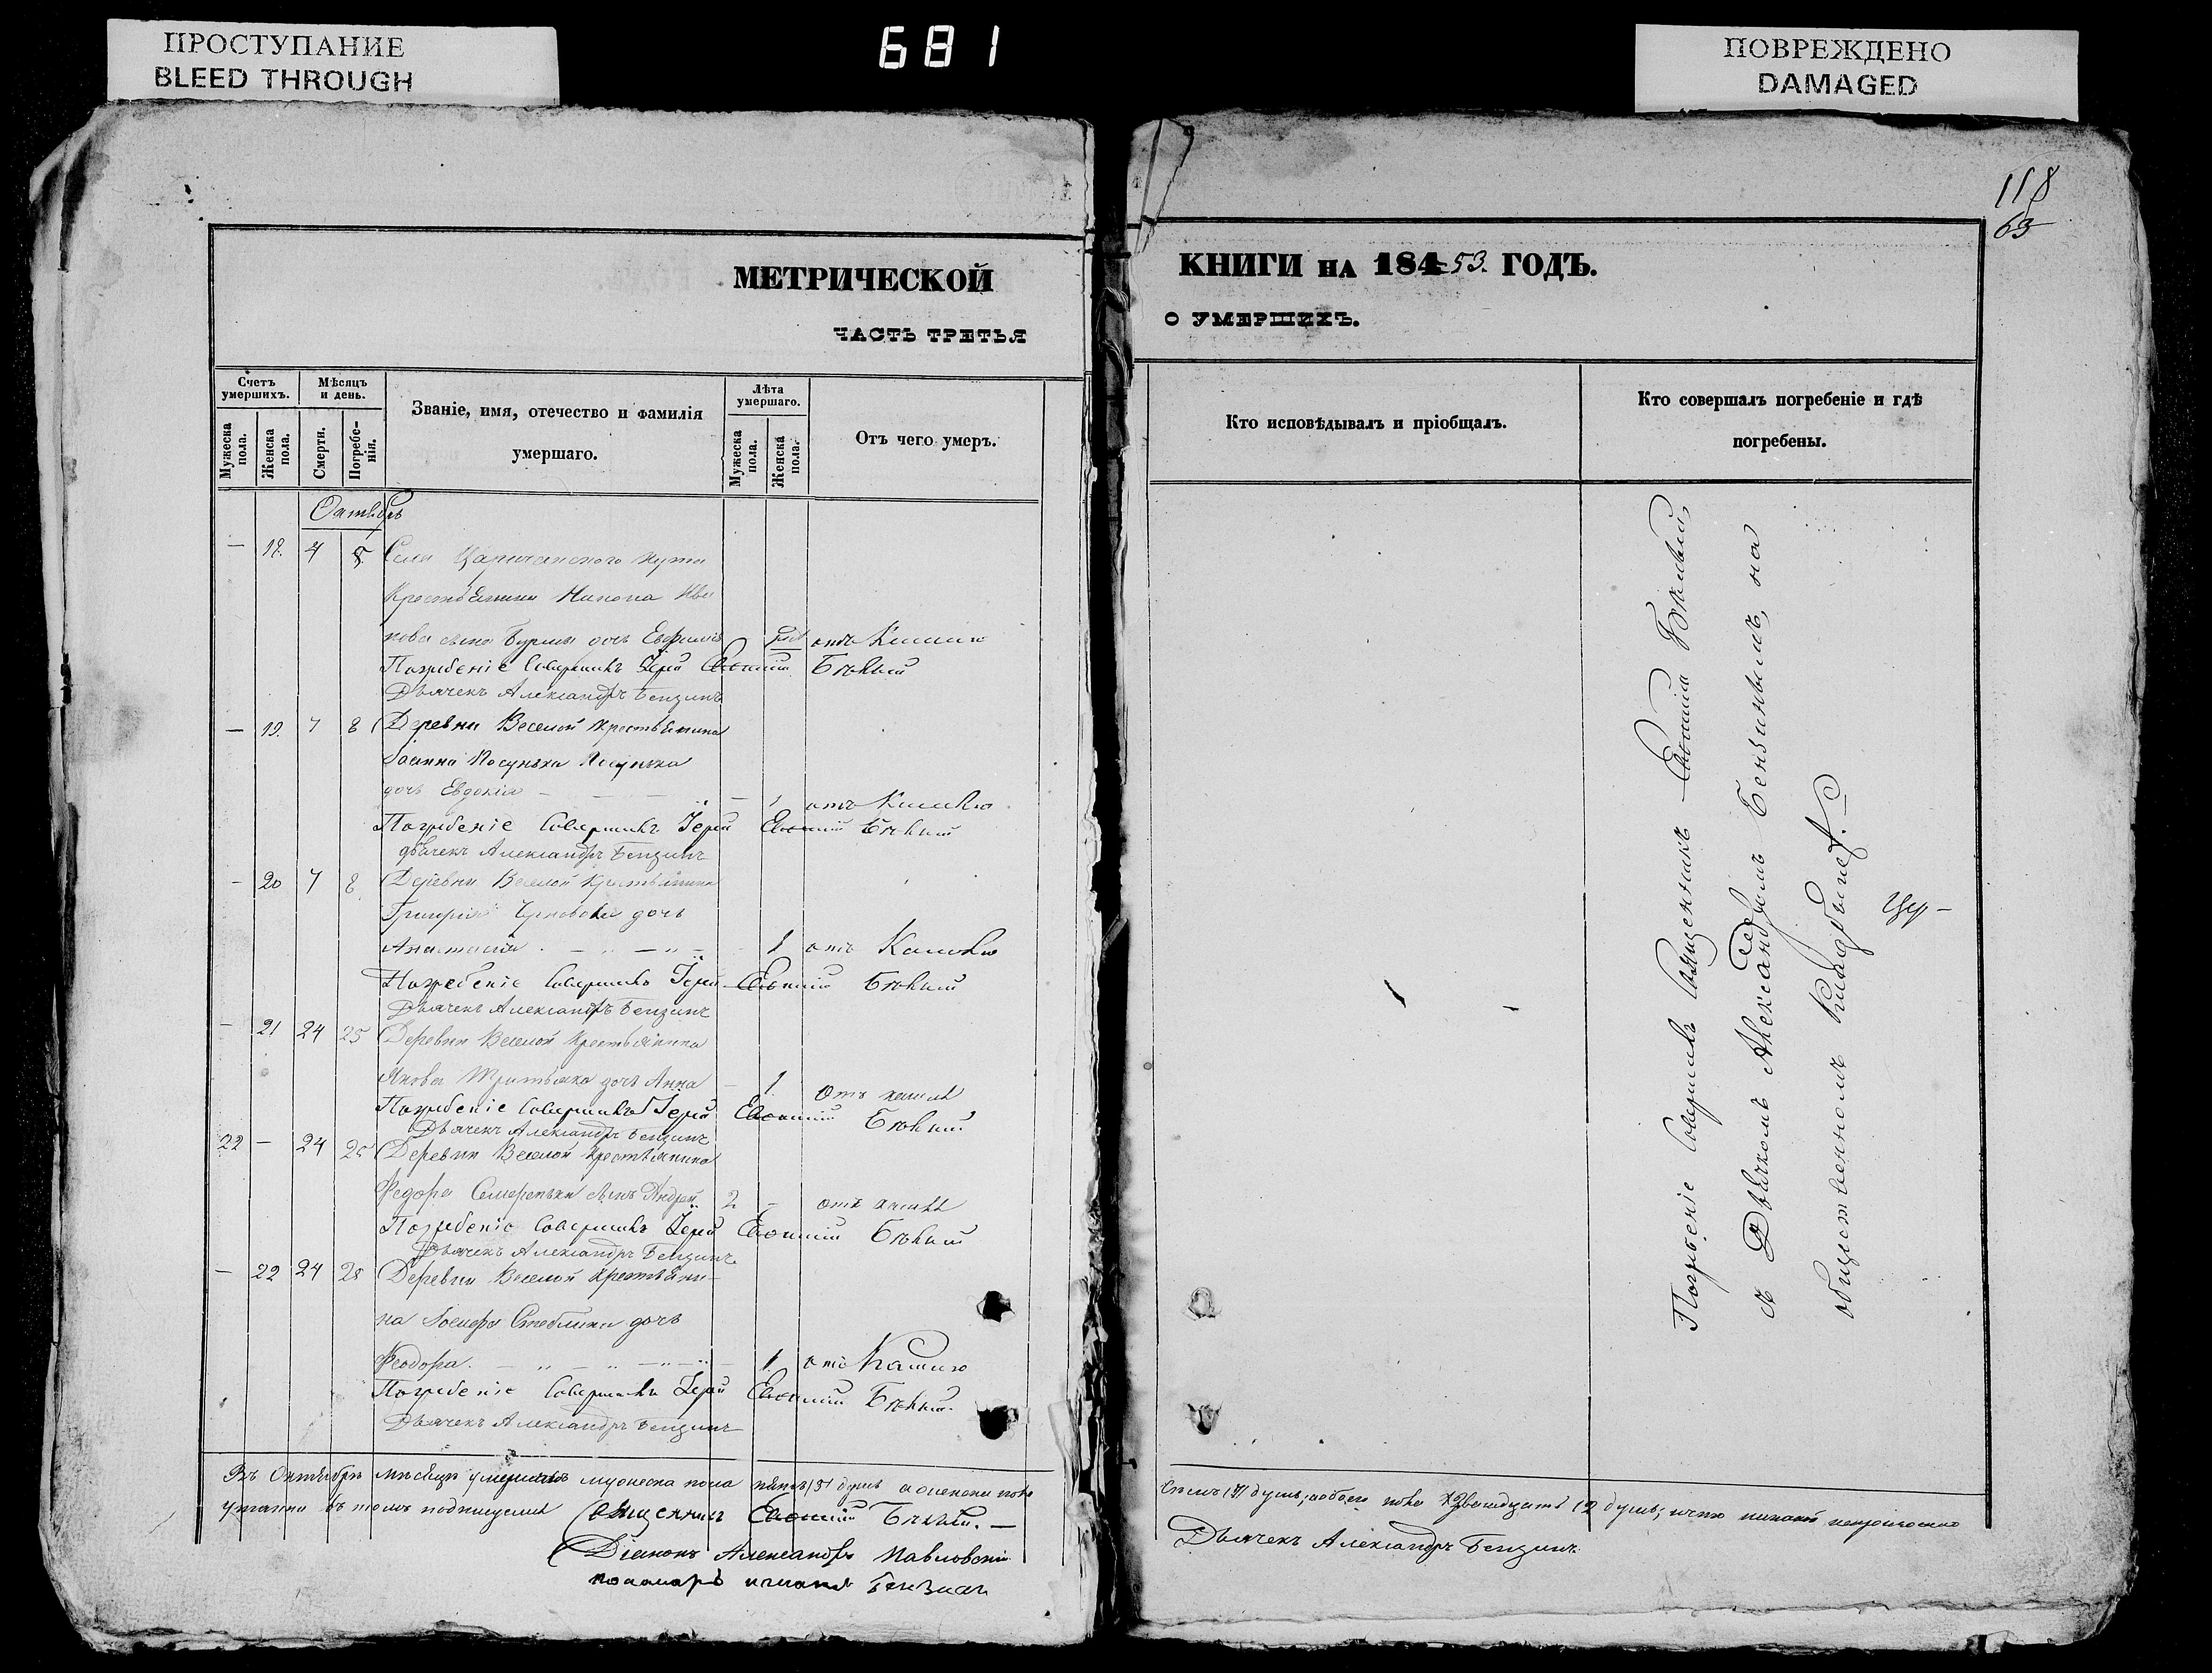 ПРОСТУПАНИЕ
BLEED THROUGH
681
ПОВРЕЖДЕНО
DAMAGED
118
63
МЕТРИЧЕСКОЙ
ЧАСТЬ ТРЕТЬЯ
КНИГИ НА 184 53. ГОДЪ.
О УМЕРШИХЪ.
Счетъ умершихъ.
Мужеска пола.
Женска пола.
Мѣсяцъ и день.
Смерти.
Погребенія.
Званіе, имя, отечество и фамилія
умершаго.
Лѣта умершаго.
Мужеска пола.
Женска пола.
Отъ чего умеръ.
Кто исповѣдывалъ и пріобщалъ.
Кто совершалъ погребеніе и гдѣ
погребены.
Октябрь
— 18. 4 5 Села Царичанского Кута
Крестьянина Никона Ива
нова сына Бурмы дочь Евфимія отъ Кашлю
Погребеніе Совершилъ Іерей Евѳимій Бѣлый
Дьячекъ Александръ Бензинъ
— 19. 7 8 Деревни Веселой Крестьянина
Іоанна
дочь Евдокія — 1 отъ Кашлю
Погребеніе Совершилъ Іерей Евѳимій Бѣлый
дьячекъ Александръ Бензинъ
— 20 7 8 Деревни Веселой Крестьянина
Григорія дочь
Анастасія — 1 отъ Кашлю
Погребеніе Совершилъ Іерей Евѳимій Бѣлый
Дьячекъ Александръ Бензинъ
— 21 24 25 Деревни Веселой Крестьянина
Якова Третьяка дочь Анна — 1 Отъ кашля
Погребеніе Совершилъ Іерей Евѳимій Бѣлый
Дьячекъ Александръ Бензинъ
22 — 24 25 Деревни Веселой Крестьянина
Федора Семереньки сынъ Андрей 2 — отъ кашля
Погребеніе Совершилъ Іерей Евѳимій Бѣлый
Дьячекъ Александръ Бензинъ
— 22 24 28 Деревни Веселой Крестьяни-
на Іосифа Стеблины дочь
Феодора. — 1 отъ Кашлю
Погребеніе Совершилъ Іерей Евѳимій Бѣлый.
Дьячекъ Александръ Бензинъ
Погребеніе Совершилъ Священникъ Евѳимій Бѣлый,
съ Дьячкомъ Александромъ Бензинымъ, на
общественномъ кладбищѣ. —
Въ Октябрѣ мѣсяцѣ умершихъ мужеска пола пять (5) душъ а женска пола
Семь (7) душъ, обоего пола двенадцать 12 душъ;
въ томъ подписуемся Священникъ Евѳимій Бѣлый. —
Діаконъ Александръ Павловскій
пономарь Бензинъ
Дьячекъ Александръ Бензинъ